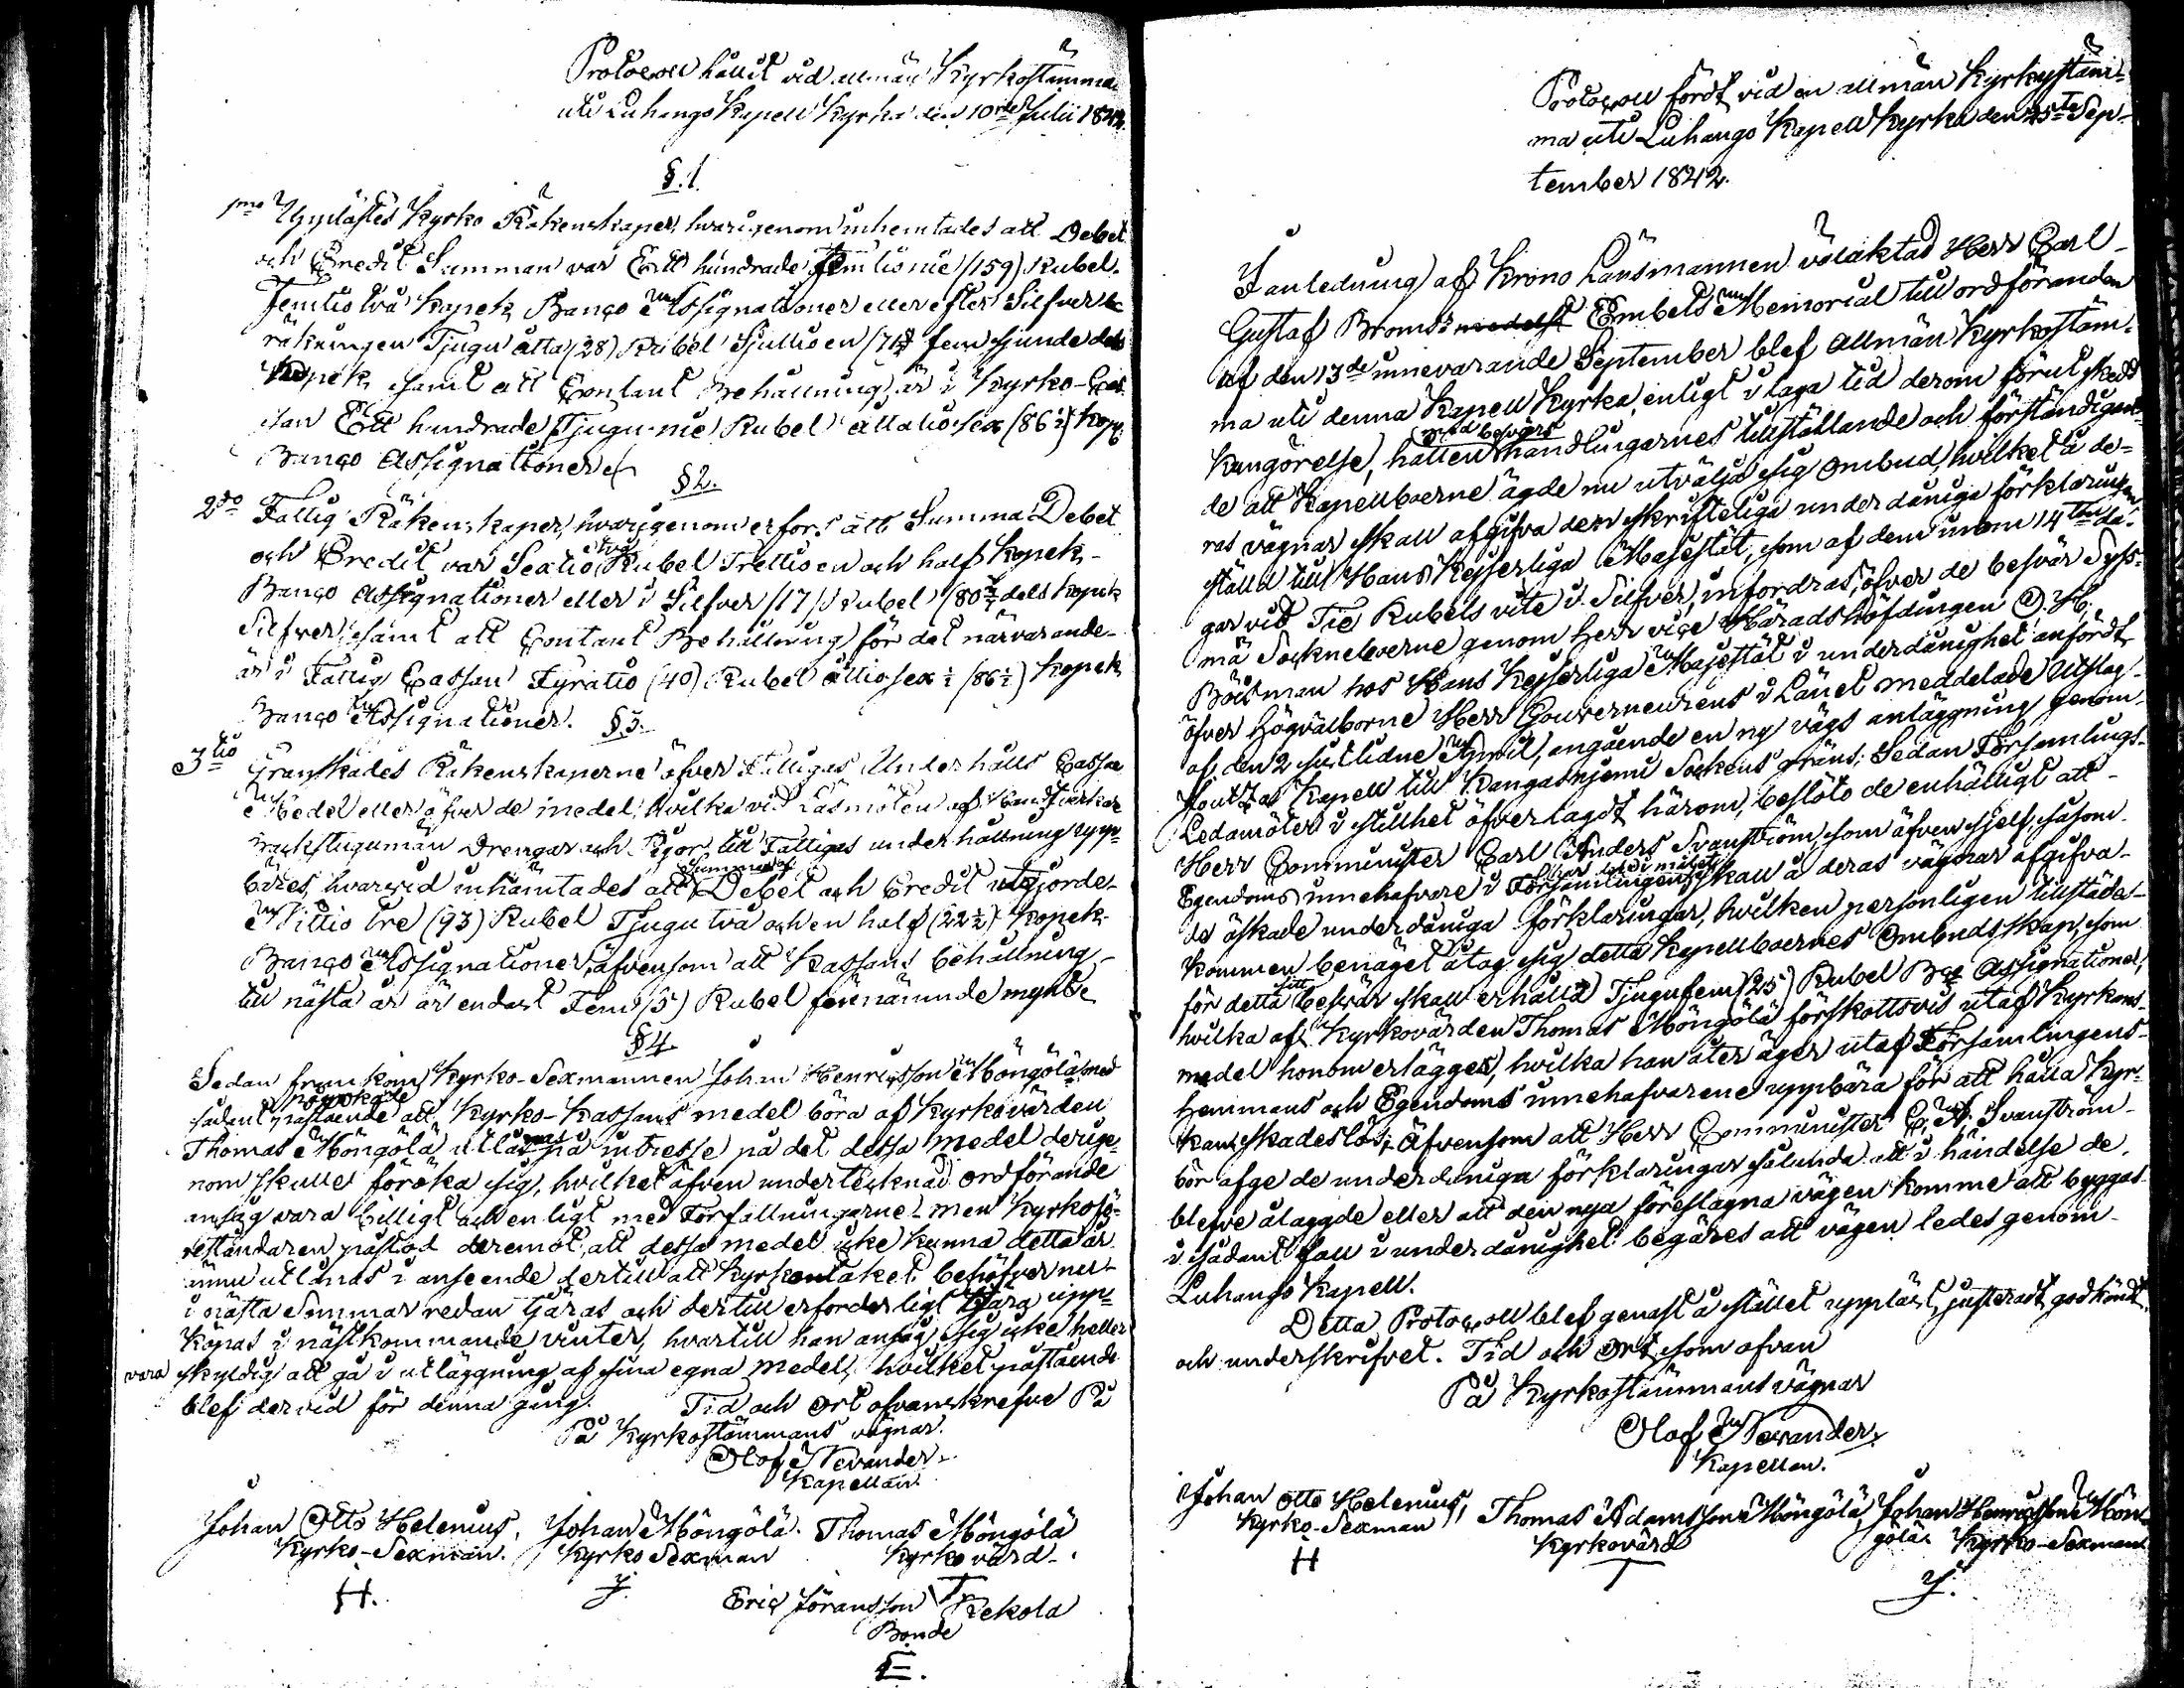 Protocoll hållit vid allmän Kyrkostämma
uti Luhango Kapell Kyrka den 10de Julii 1842.
§.1.
1mo Upplästes Kyrko Räkenskaper, hvarigenom inhemtades att Debet
och Credit Summan var Ett hundrade femtionie (159) Rubel
Femtiotvå Kopek Banco Assignationer eller efter Silfver be
räkningen Tjugu åtta (28) Rubel Sjuttioen (71 5/7 fem sjunde dels
Kopek samt att Contant Behållning är i Kyrko-Cas
san Ett hundrade Tjugu-nie Rubel åttatiosex (86 1/2) Kop.
Banco Assignationer
§2.
2do Fattig Räkenskaper, hvarigenom erfors att Summa Debet
och Credit var Sextio två Rubel Trettioen och half Kopek
Banco Assignationer eller i Silfver (17) Rubel (80 dels Kopek
Silfver samt att Contant Behållning för det närvarande
är i Fattig Cassan Fyratio (40) Rubel åttiosex ½ (86 ½) Kopek
Banco Assignationer.
§3.
3tio Granskades Räkenskaperne öfver Fattigas Underhålls Cassae
Medel eller öfver de medel, hvilka vid Läsmöten af Handtverkare
Backstugumän Drengar och Pigor till Fattigas underhållning upp-
bäres, hvarvid inhämtades att Summan af Debet och Credit utgjorde
Nittio tre (93) Rubel Tjugu två och en half (22½) Kopek
Banco Assignationer, äfvensom att Kassans behållning
till nästa år är endast Fem (5) Rubel förenämnde mynt
§4.
Sedan framkom Kyrko-Sexmannen Johan Henricsson Möngölä med
sådant påstående att Kyrko-Kassans medel böra af Kyrkovärden
Thomas Möngölä utlånas på intresse på det dessa medel derige-
nom skulle föröka sig, hvilket äfven undertecknad ordförande
ansåg vara billigt och enligt med Författningarne. men Kyrkofö-
reståndaren påstod deremot, att dessa medel icke kunna detta år
ännu utlånas i anseende dertill att Kyrkontaket behöfver nu
i nästa Sommar redan tjäras och dertill erforderligt tjära upp-
köpas i nästkommande vinter, hvartill han ansåg sig icke heller
vara skyldig att gå i utläggning af sina egna medel, hvilket påstående
blef dervid för denna gång. Tid och ort ofvanskrefve På
På Kyrkostämmans vägnar.
Olof Nevander
Kapellan.
Johan Otto Helenius, Johan Möngölä. Thomas Möngölä
Kyrko-Sexman. Kyrko Sexman Kyrkovärd.
H. J. T
Eric Göransson Kekola
Bonde
E.
Protocoll fördt vid en allmän Kyrkostäm-
ma uti Luhango Kapell Kyrka den 25te Sep-
tember 1842.
I anledning af Krono Länsmannen välaktad Herr Carl
Gustaf Broms' Embets Memorial till ordföranden
af den 13de innevarande September blef allmän Kyrkostäm-
ma uti denna Kapell Kyrka, enligt i laga tid derom förut skedd
Kungörelse, hållen med besvärs handlingarnes tillställande och förständigan-
de att Kapellboerne ägde nu utvälja sig ombud, hvilket å de-
ras vägnar skall afgifva den skrifteliga underdåniga förklaringen
ställd till Hans Kejserliga Majestät, som af dem inom 14 da-
gar vid Tie Rubels vite i Silfver, infordras, öfver de besvär Syss-
mä Sockneboerne genom Herr vice Häradshöfdingen O. H.
Boisman hos Hans Kejserliga Majestät i underdånighet anfördt
öfver Högvälborne Herr Gouverneurens i Länet meddelade Utslag
af den 2 sistlidne April, angående en ny vägs anläggning genom
Joutsa Kapell till Kangasniemi Sockens gräns; Sedan Församlings-
Ledamöter i stillhet öfverlagdt härom, beslöto de enhäligt att
Herr Comminister Carl Anders Svanström, som äfven sjelf, såsom
Egendoms innehafvare i Församlingen, skall å deras vägnar afgifva
de äskade underdåniga förklaringar, hvilken personligen tillstädes
kommen benäget åtog sig detta Kapellboernes Ombudskap, som
för detta sitt besvär skall erhålla Tjugufem (25) Rubel Bco Assignationer,
hvilka af Kyrkovärden Thomas Möngölä förskottsvis utaf Kyrkans
medel honom erlägges, hvilka han åter äger utaf Församlingens
Hemmans och Egendoms innehafvarene uppbära för att hålla Kyr-
kan skadeslös; Äfvensom att Herr Comminister C. A. Svanström
bör afge de underdåniga förklaringar sålunda att i händelse de
blefve ålaggde eller att den nya föreslagna vägen komme att byggas
i sådant fall i underdånighet begäres att vägen ledes genom
Luhango Kapell.
Detta Protocoll blef genast å stället uppläst, justeradt, godkändt
och underskrifvet. Tid och Ort som ofvan
På Kyrkostämmans vägnar
Olof Nevander
Kapellan.
Johan Otto Helenius, Thomas Adamsson Möngölä, Johan Henricsson Mön-
Kyrko-Sexman Kyrkovärd gölä Kyrko-Sexman
H T J.